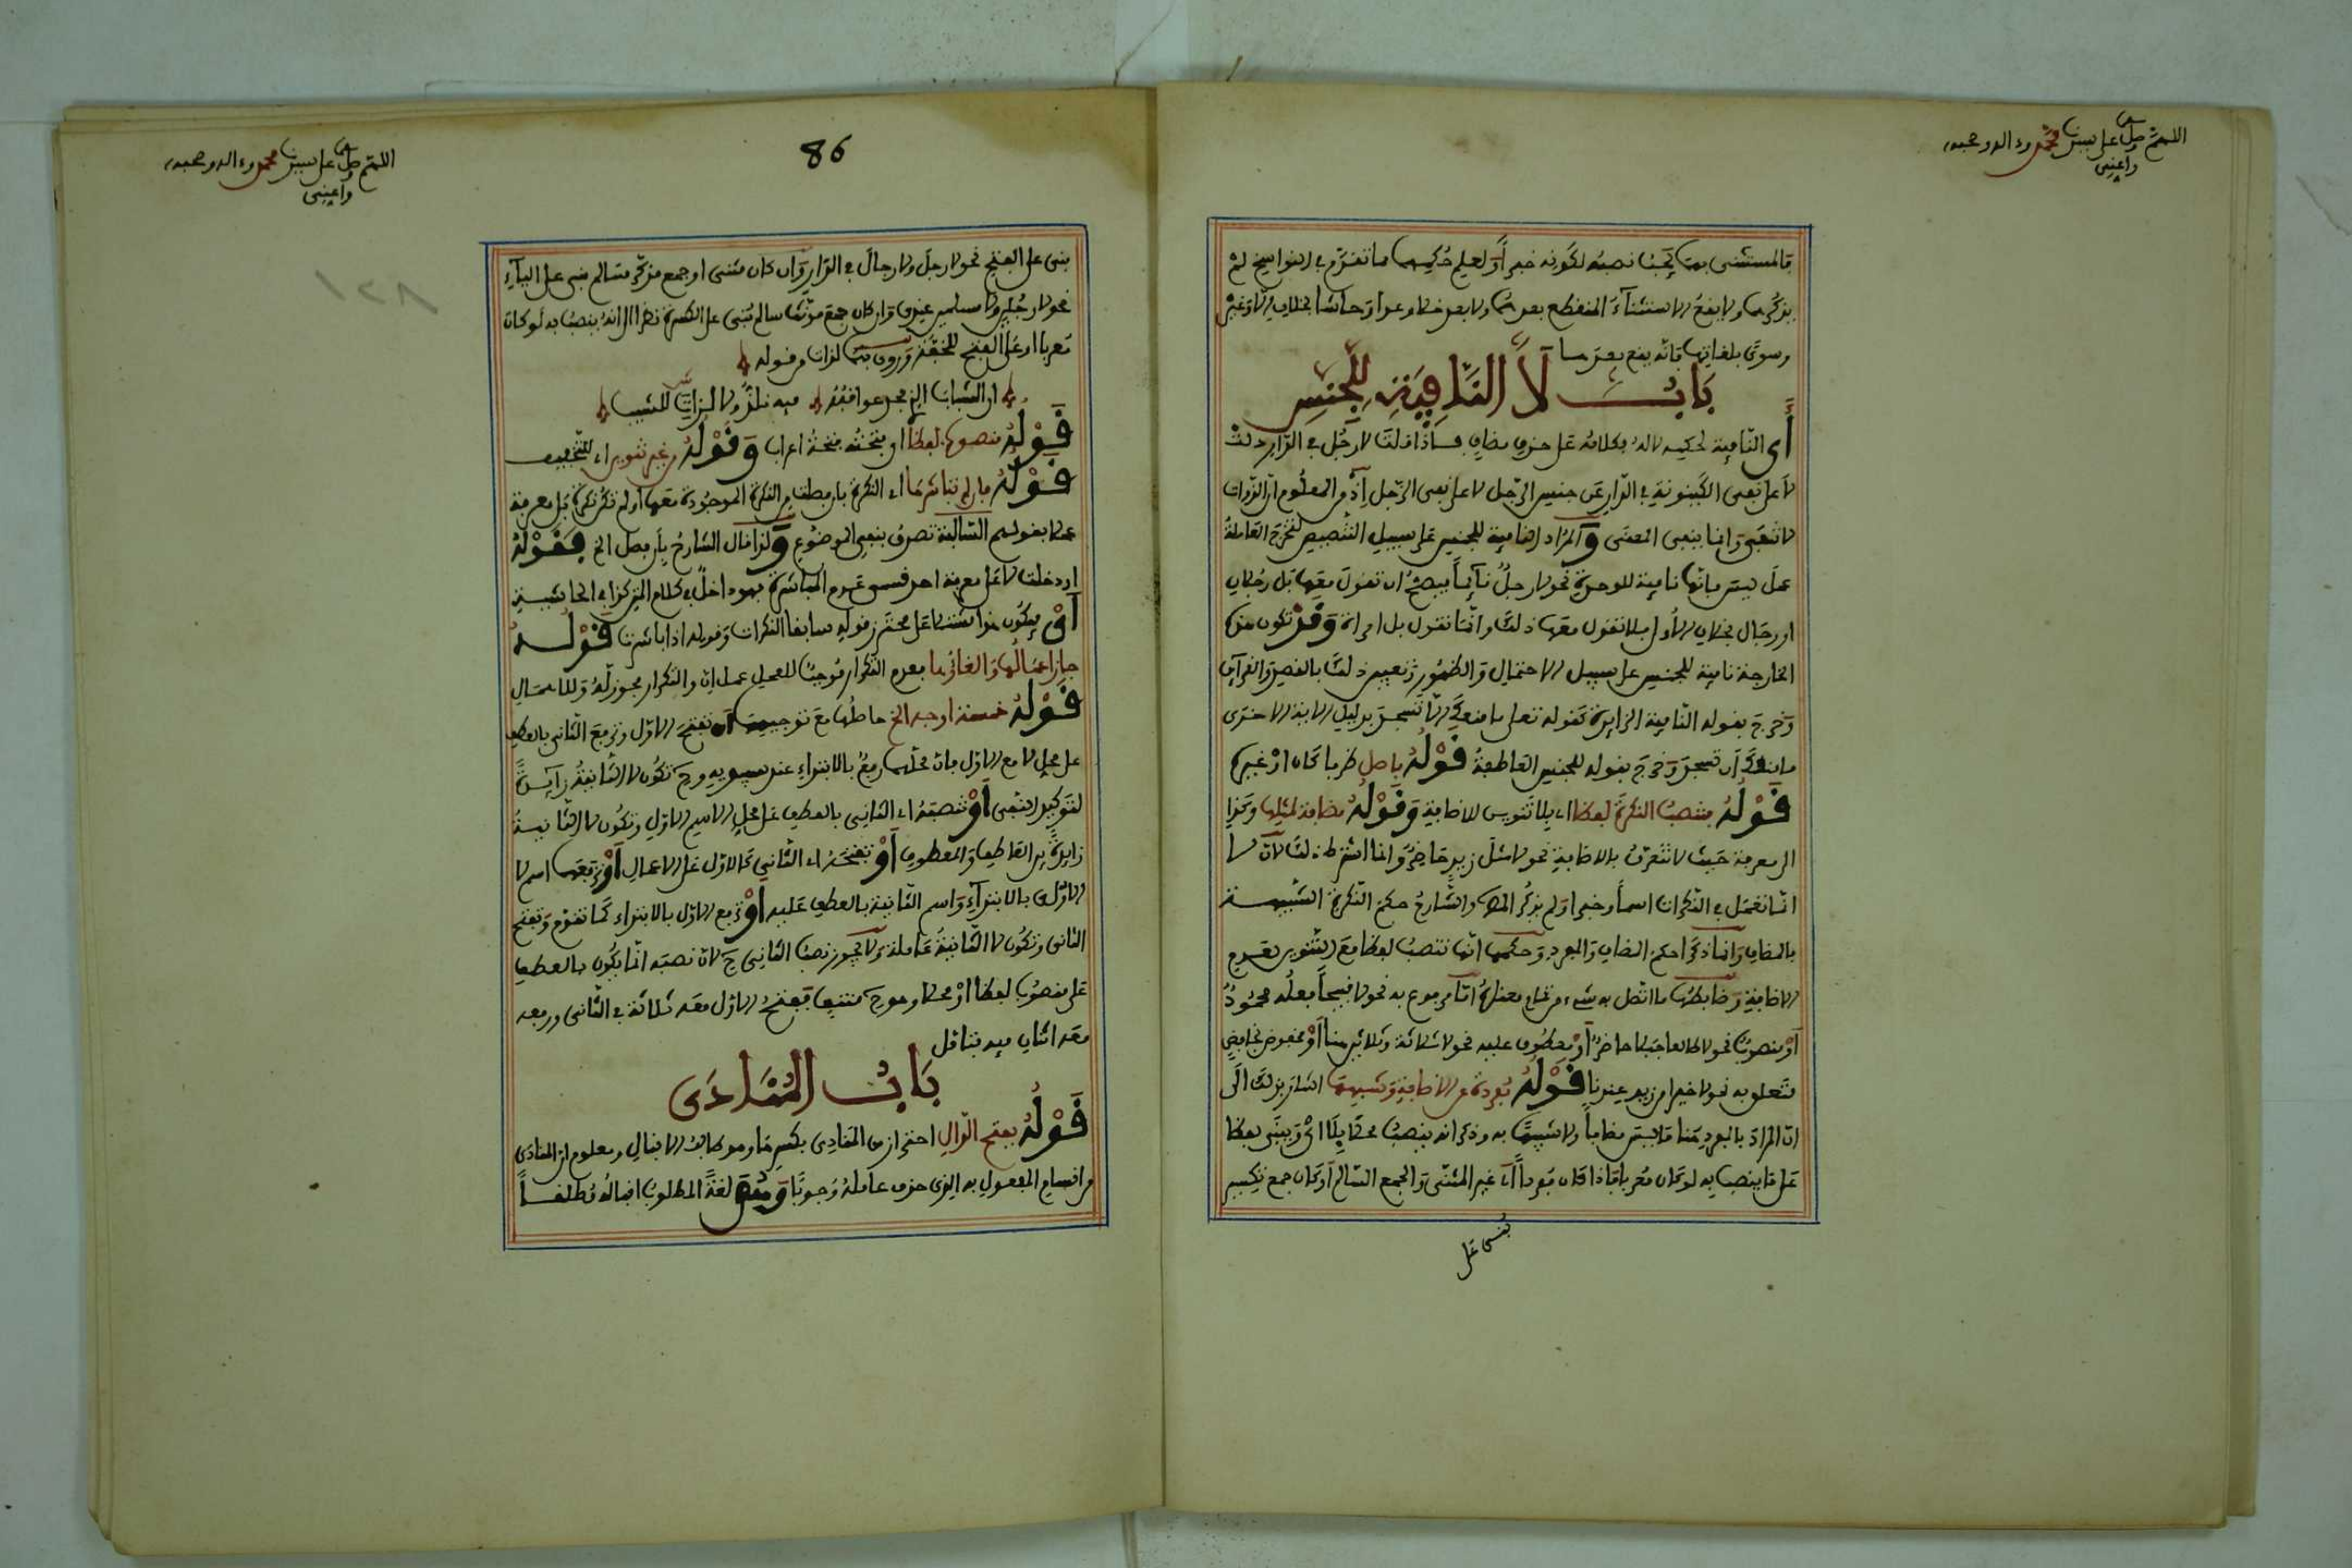 اللهم صل على سيدنا محمد وءاله وصحبه
وأعني
فالمستثنى بهما يجب نصبه لكونه خبرا ولعلم حكمهما مما تقدم في النواسخ لم
يذكرهما ولا يقع الاستثناء المنقطع بعدهما ولا بعد خلا وعدا وحاشا بخلاف إلا وغير
وسوى بلغاتها فانه يقع بعدها
باب لا النافية للجنس
أي النافية لحكمه
لا على نفي الكينونية في الدار عن جنس الرجل لا على نفي الرجل إذ من المعلوم ان الذوات
لا تنفى وإنما ينفى المعنى والمراد النافية للجنس على سبيل التنصيص لتخرج العاملة
عمل ليس فانها نافية للوحدة نحو لا رجل قائما فيصح ان تقول معها بل رجلان
او رجال بخلاف الأولى فلا تقول معها ذلك وانما تقول بل امراة وقد تكون هذه
الخارجة نافية للجنس على سبيل الاحتمال والظهور وتعيين ذلك بالقصد والقرائن
وخرج بقوله النافية الزايدة كقوله تعلى ما منعك ألا تسجد بدليل الاية الاخرى
ما منعك أن تسجد وخرج بقوله للجنس العاطفة قوله فاصل ظرفا كان او غيره
قوله تنصب النكرة لفظا اي بلا تنوين للاضافة وقوله مضافة لمثلها وكذا
الى معرفة حيث لا تتعرف بالاضافة نحو لا مثل زيد حاضر وانما اشترط ذلك لان لا
انما تعمل في النكرات اسما وخبرا ولم يذكر المص والشارح حكم النكرة الشبيهة
بالمضاف وانما ذكرا حكم المضاف والمفرد وحكمها انها تنصب لفظا مع التنوين لعدم
الاضافة وضابطها ما اتصل به شيء من تمام معناه اما مرفوع به نحو لا قبيحا فعله محمود
أو منصوب نحو لا طالعا جبلا حاضر أو معطوف عليه نحو لا ثلاثة وثلاثين هنا أو مخفوض بخافض
متعلق به نحو لا خيرا من زيد عندنا قوله مفردة عن الاضافة وشبهها اشار بذلك الى
ان المراد بالمفرد هنا ما ليس مضافا ولا شبيها به وذكر انه ينصب محلا بلا اي ويبنى لفظا
على ما ينصب به لو كان معربا فاذا كان مفردا أي غير المثنى والجمع السالم او كان جمع تكسير
بني على
86
اللهم صل على سيدنا محمد وءاله وصحبه
وأعني
بني على الفتح نحو لا رجل ولا رجال في الدار وان كان مثنى او جمع مذكر سالم بني على الياء
نحو لا رجلين ولا مسلمين عندي وان كان جمع مؤنث سالم بني على الكسرة نظرا الى انه ينصب به لو كان
معربا او على الفتح للخفة وروي بهما لذات من قوله
ان الشباب الذي مجد عواقبه فيه نلذ ولا لذات للشيب
قوله منصوبها لفظا اي فتحته فتحة اعراب وقوله وغير تنوين اي للتخفيف
قوله فان لم تباشرها اي النكرة بان فصلت من النكرة الموجودة معها او لم تكن نكرة بل معرفة
عملا بقولهم السالبة تصدق بنفي الموضوع ولذا قال الشارح بأن فصل الخ فقوله
او دخلت لا على معرفة احد قسمي عدم المباشرة فهو داخل في كلام المتن كذا في الحاشية
أي فيكون هذا مشتملا على محترز قوله سابقا النكرات وقوله اذا باشرت قوله
جاز اعمالها والغاؤها فعدم التكرار موجب للعمل عمل ان والتكرار مجوز له وللاهمال
قوله خمسة اوجه الخ حاصلها مع توجيهها ان تفتح الاول وترفع الثاني بالعطف
على محل لا مع الاول فان محلهما رفع بالابتداء عند سيبويه وح تكون لا الثانية زايدة
لتوكيد النفي أو تنصبه اي الثاني بالعطف على محل الاسم الاول وتكون لا الثانية
زايدة بين العاطف والمعطوف أو تفتحه اي الثاني كالاول على الاعمال أو ترفعهما اسم لا
الاولى بالابتداء واسم الثانية بالعطف عليه أو ترفع الاول بالابتداء كما تقدم وتفتح
الثاني وتكون لا الثانية عاملة ولا يجوز نصب الثاني ح لان نصبه انما يكون بالعطف
على منصوب لفظا او محلا وهو ح منتف ففتح الاول معه ثلاثة في الثاني ورفعه
معه اثنان فيه فتامل
باب المنادى
قوله بفتح الدال احترازا من المنادي بكسرها وهو طالب الاقبال ومعلوم ان المنادى
من اقسام المفعول به الذي حذف عامله وجوبا وهو لغة المطلوب اقباله مطلقا